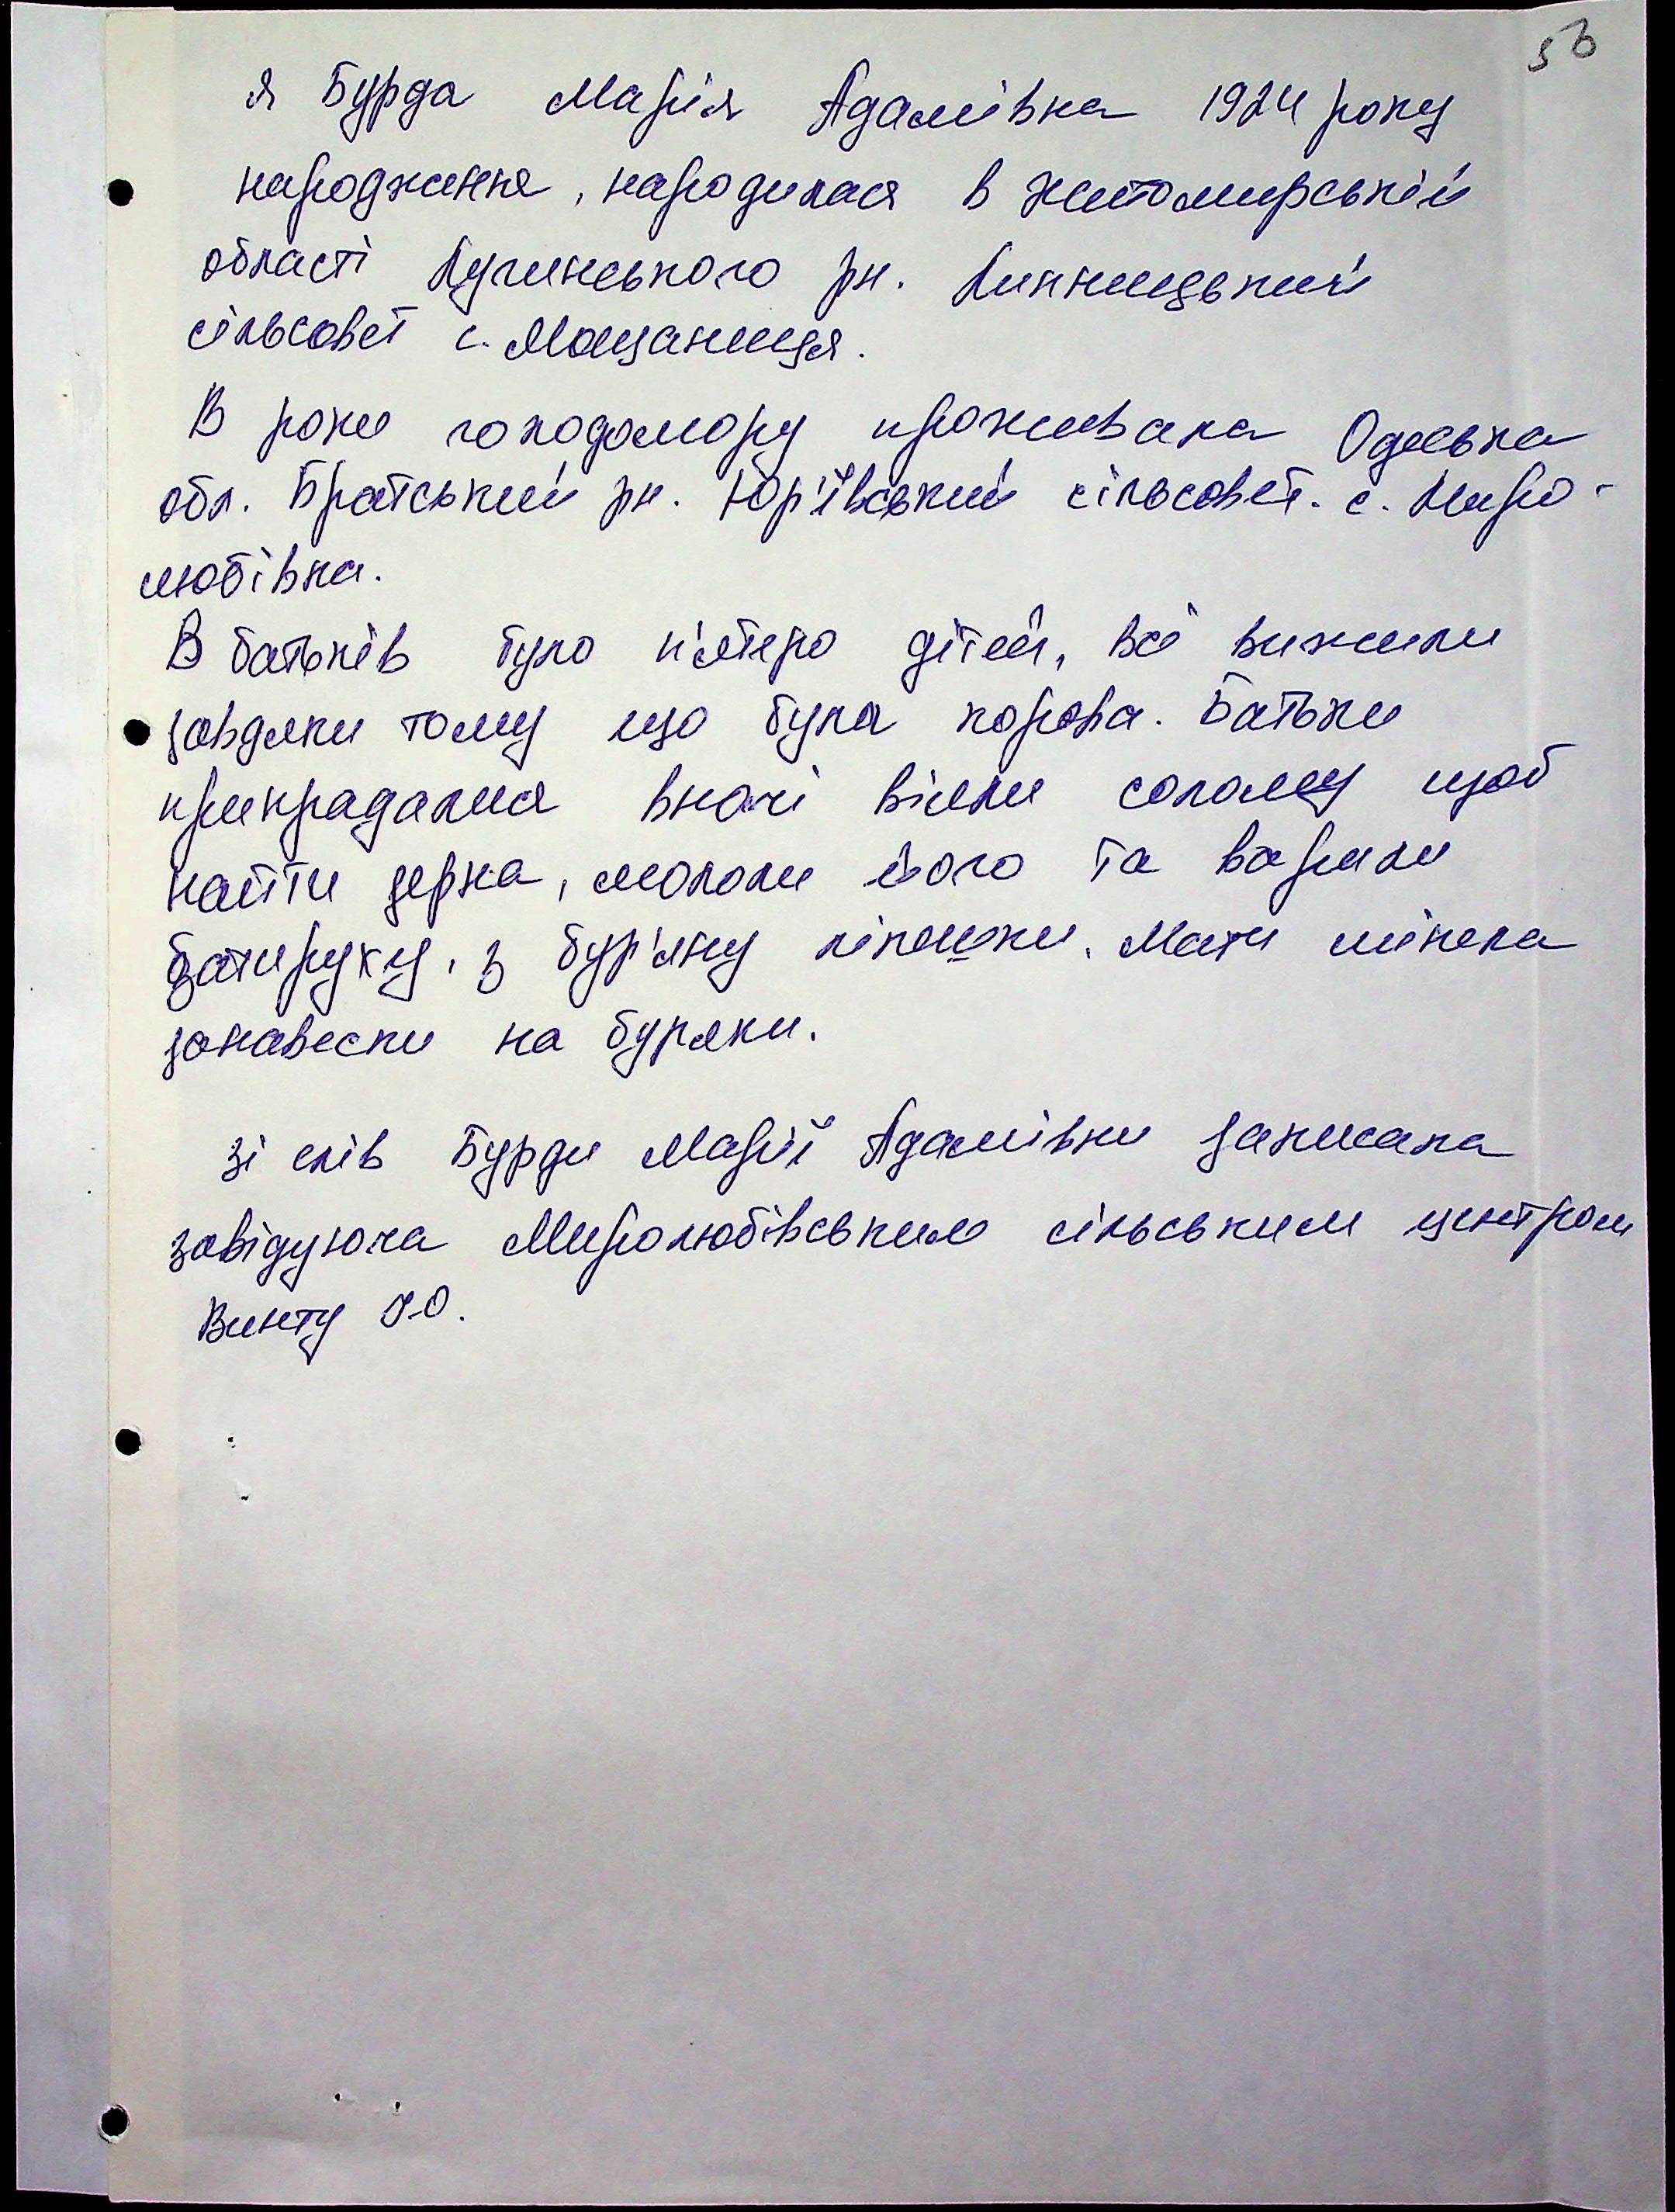 53
Я Бурда Марія Адамівна 1924 року
народження, народилася в Житомирській
області Лугинського рн. Липницький
сільсовет с. Мощаниця.
В роки голодомору проживала Одеська
обл. Братський рн. Юр'ївський сільсовет. с. Миро-
любівка.
В батьків було п'ятеро дітей, всі вижили
завдяки тому що була корова. Батьки
прикрадалися вночі віяли солому щоб
найти зерна, мололи його та варили
затируху, з бур'яну ліпешки. Мати міняла
занавески на буряки.
Зі слів Бурди Марії Адамівни записала
завідуюча Миролюбівським сільським центром
Винту Я.О.